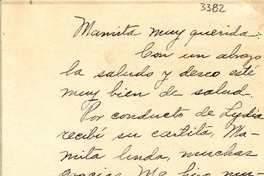 3382
Mamita muy querida:
Con un abrazo
la saludo y deseo esté
muy bien de salud.
Por conducto de Lydia
recibí su cartita, Ma-
mita linda, muchas
gracias. Me hizo mu-